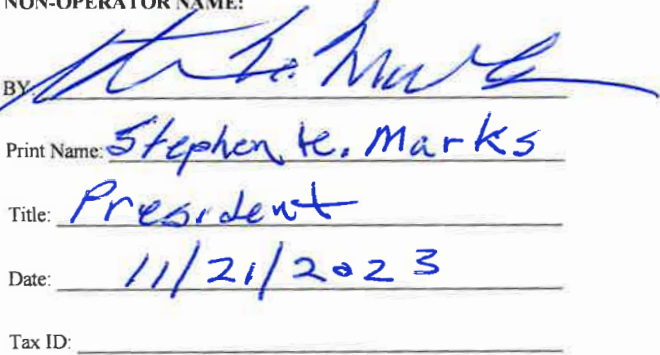 NON-OPERATOR NAME:
BY:
Print Name: Stephen K. Marks
Title: President
Date: 11/21/2023
Tax ID: